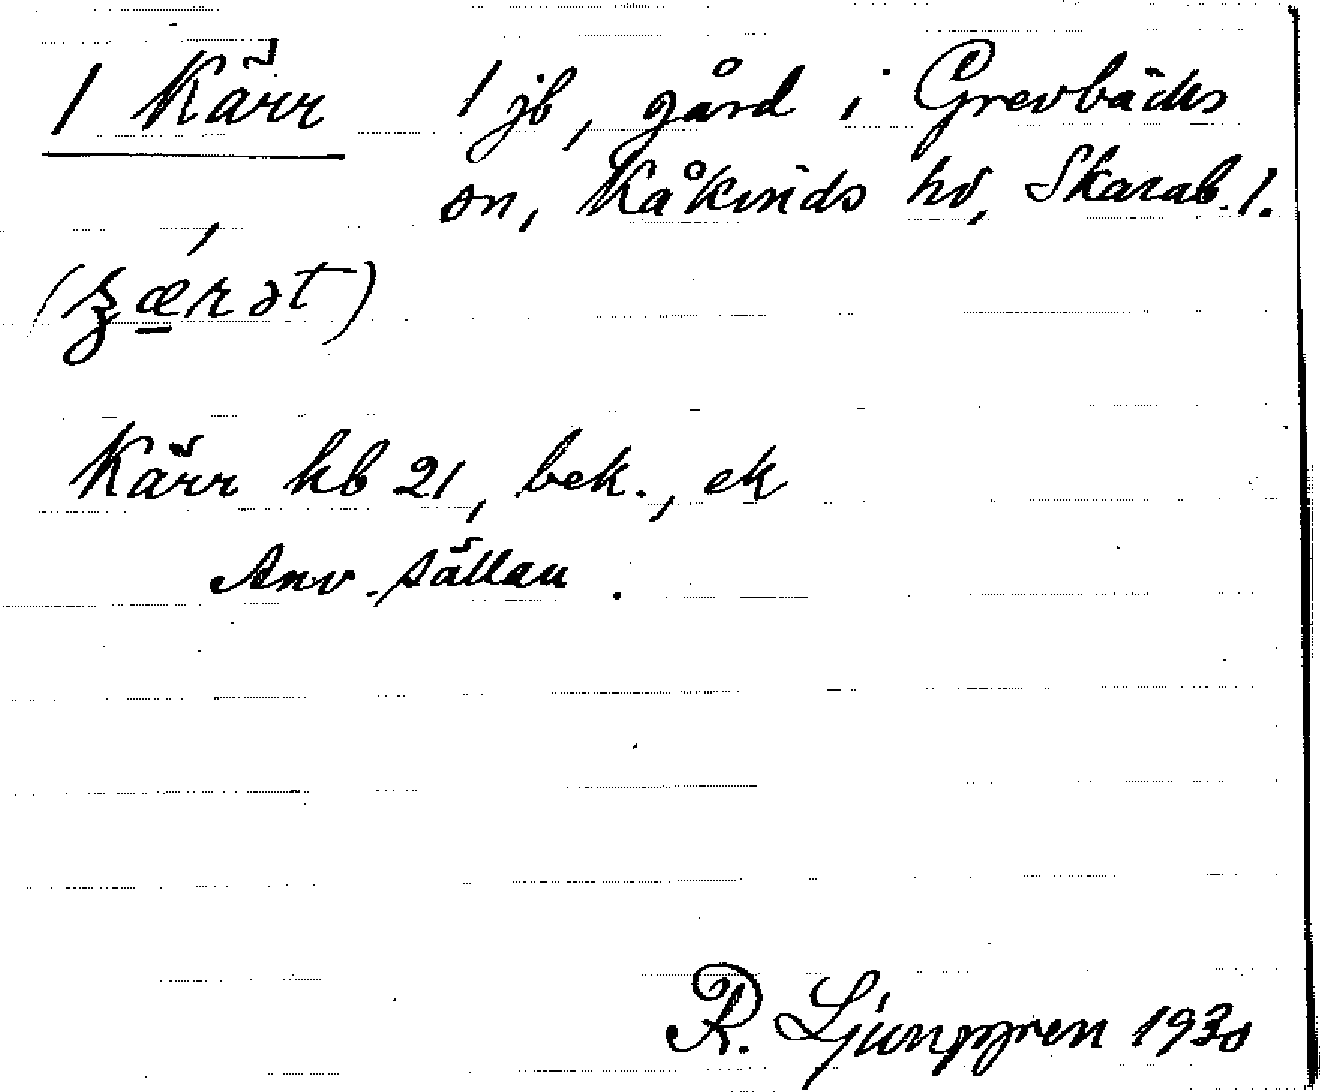 1 Kärr 1 jb, gård i Grevbäcks
sn, Kåkinds hd, Skarab. l.
(ʒǽ̠rət)
Kärr kb 21, bek., ek
Anv. sällan.
R. Ljunggren 1930